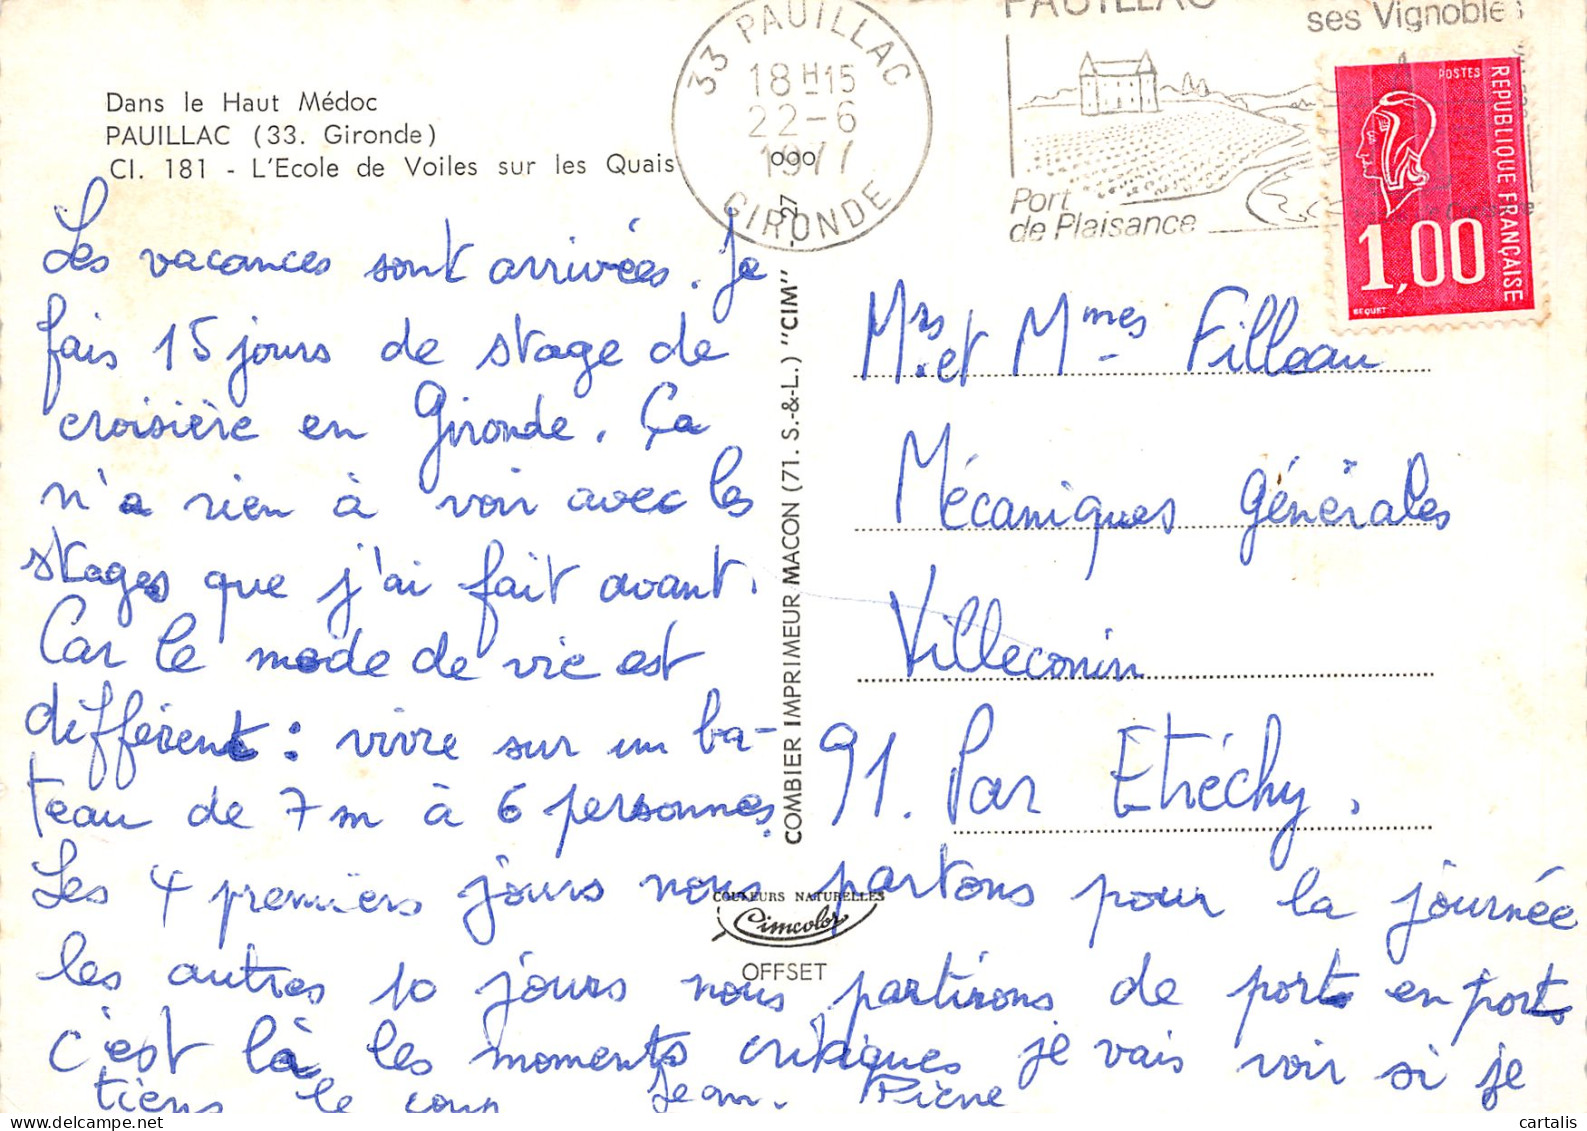 Dans le Haut Médoc
PAUILLAC (33. Gironde)
Cl. 181 - L'Ecole de Voiles sur les Quais
33 PAUILLAC
18 H 15
22-6
1977
GIRONDE
PAUILLAC
ses Vignobles
Port
de Plaisance
POSTES
REPUBLIQUE FRANÇAISE
1,00
BEQUET
Les vacances sont arrivées. Je
fais 15 jours de stage de
croisière en Gironde. Ça
n'a rien à voir avec les
stages que j'ai fait avant.
Car le mode de vie est
différent : vivre sur un ba-
teau de 7 m à 6 personnes.
Les 4 premiers jours nous partons pour la journée
les autres 10 jours nous partirons de ports en ports
c'est là les moments critiques je vais voir si je
tiens le coup Jean-Pierre
COMBIER IMPRIMEUR MACON (71. S.-&-L.) "CIM"
COULEURS NATURELLES
Cimcolor
OFFSET
Mrs. et Mmes Filleau
Mécaniques Générales
Villeconin
91. Par Etréchy.
© cartalis